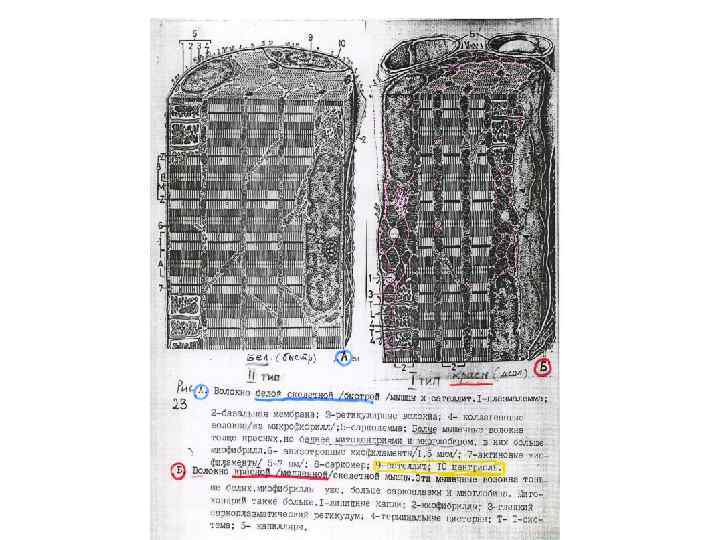 5
1 2 3 4
9
10
Б
2
Z
З
М
Z
6
I
А
7
1
3
Т
4
Т
4
2
2
Бел. (быстр) А
II тип
I тип красн (медл) Б
Рис А. Волокно белой скелетной /быстрой /мышцы и сателлит.I-плазмалемма;
23
2-базальная мембрана; 3-ретикулярные волокна; 4- коллагеновые
волокно/из микрофибрилл/;5-сарколемма; Белые мышечные волокна
толще красных,но беднее митохондриями и миоглобином, в них больше
миофибрилл.6- анизотропные миофиламенты/1,5 мкм/; 7-актиновые мио-
филаменты/ 5-7 нм/; 8-саркомер; 9-сателлит; 10 центриоль.
Б. Волокно красной /медленной/скелетной мышцы.Эти мышечные волокна тонь-
ше белых,миофибриллы уже, больше саркоплазмы и миоглобина. Мито-
хондрий также больше.I-липидные капли; 2-миофибриллы; 3-гладкий
саркоплазматический ретикулум; 4-терминальные цистерны; Т- Т-сис-
тема; 5- капилляры.